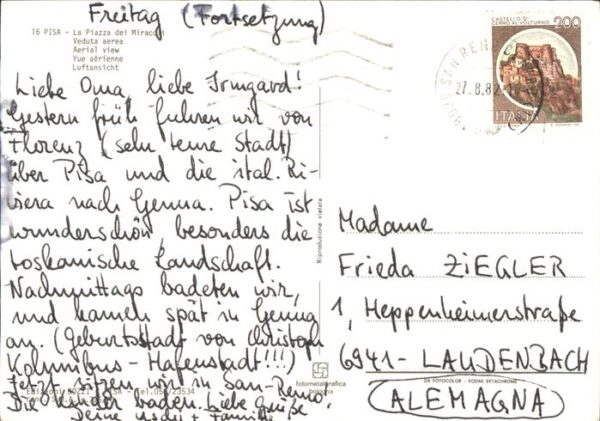 Freitag (Fortsetzung)
16 PISA - La Piazza dei Miracoli
Veduta aerea
Aerial view
Vue aérienne
Luftansicht
Liebe Oma, liebe Irmgard!
Gestern früh fuhren wir von
Florenz (sehr teure Stadt)
über Pisa und die ital. Ri-
viera nach Genua. Pisa ist
wunderschön, besonders die
toskanische Landschaft.
Nachmittags badeten wir,
und kamen spät in Genua
an. (Geburtsstadt von Christoph
Kolumbus - Hafenstadt!!!)
Jetzt sitzen wir in San-Remo.
Die Kinder baden. Liebe Grüße
Deine + Familie
Riproduzione vietata
fotometalgrafica
bologna
CASTELLO DI
CERRO AL VOLTURNO
200
ITALIA
SAN REMO
27.8.82
Madame
Frieda ZIEGLER
1, Heppenheimerstraße
6941 - LAUDENBACH
DA FOTOCOLOR - KODAK EKTACHROME
ALEMAGNA